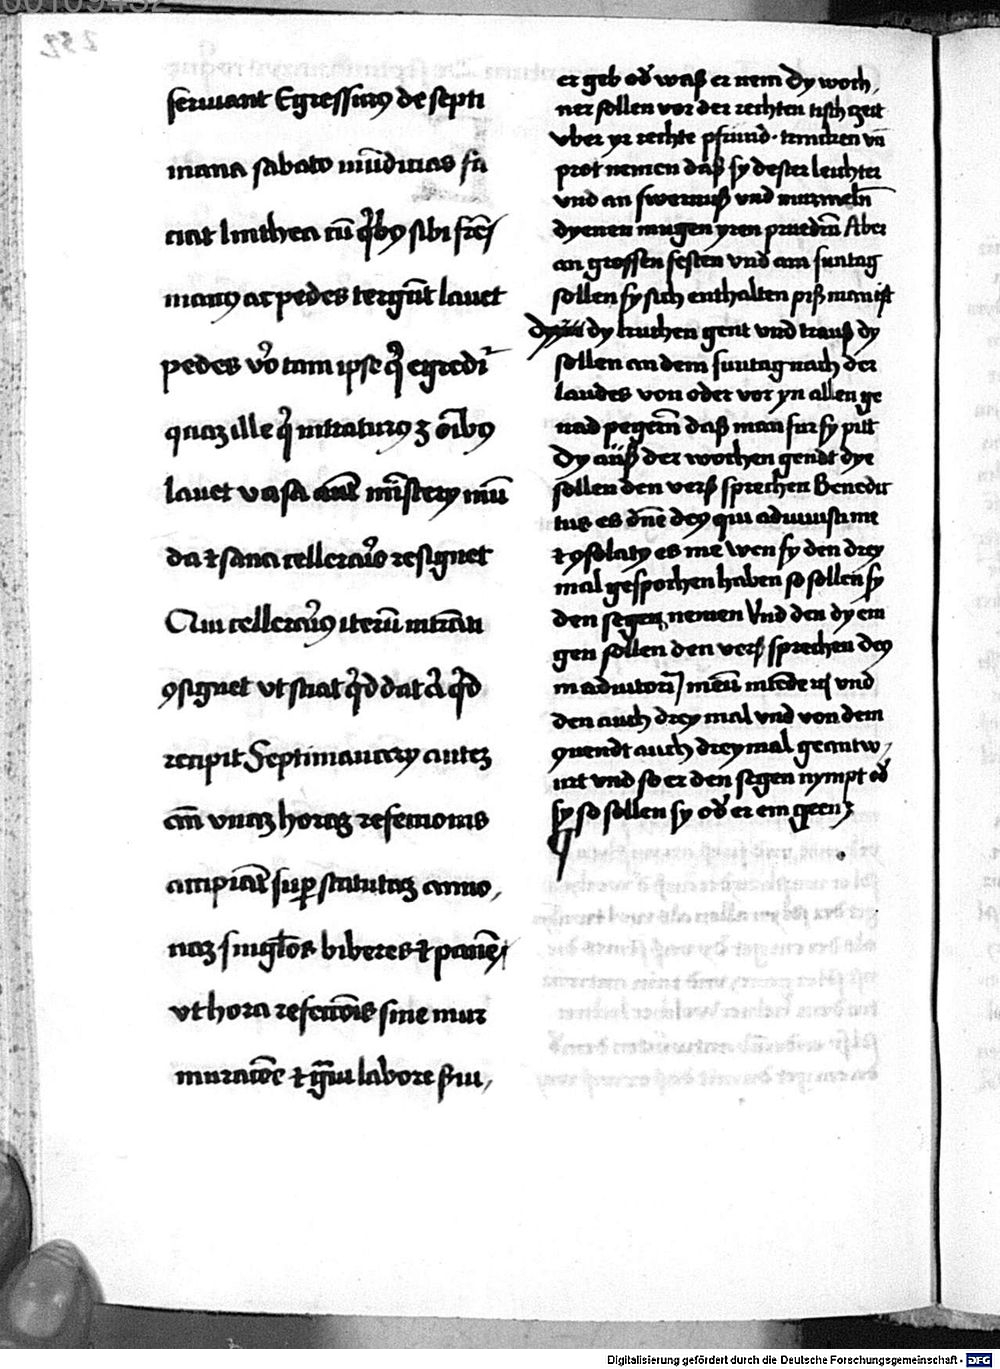 seruiant Egressurꝯ de septi
mana sabato mūdicias fa
ciat linthea cū qͥbꝯ sibi frēs
manꝯ ac pedes tergūt lauet
pedes vͦo tam ipse qͥ egredit᷑
quaꝫ ille qͥ intraturꝯ ꝫ oībꝯ
lauet vasa aūt mīstery mū
da et sana cellerario resignet
Qui cellerariꝯ iterū intrāti
ꝯsignet vt sciat qͥd dat aut qͥd
recipit Septimanary autez
añ vnaꝫ horaꝫ refectionis
accipiāt suꝑ statutaꝫ anno,
naꝫ singl̄os biberes et panē
vt hora refectiōis sine mur
muratōe et gͣui labore ẞui,
er geb od' waß er nem Dy woch,
ner sollen vor der rechten tisch zeit
vber yr rechte pfrund · trincken vn̄
prot nemen daß sy dester leichter
vnd an swernuß vnd murmelñ
dyenen mugen yren pruedrn̄ Aber
an grossen festen vnd am suntag
sollen sy sich enthalten piß man ist
dy kuchen gent vnd trauß dy
sollen an dem suntag nach der
laudes von oder vor yn allen ge
nad pegern̄ daß man fur sy pitt
Dy auß der wochen gendt dye
sollen den verß sprechen Benedic
tus es dn̄e deꝯ qui adiuuisti me
et ꝯsolatꝯ es me Wen sy den drey
mal gesprochen haben so sollen sy
den segen nemen Vnd den dy ein
gen sollen den verß sprechen deꝯ
in adiutoriū meū intēde rͣ vnd
den auch drey mal vnd von dem
ꝯuendt auch drey mal geantw,
urt vnd so er den segen nympt od'
sy so sollen sy od' er ein geen
Digitalisierung gefördert durch die Deutsche Forschungsgemeinschaft - DFG